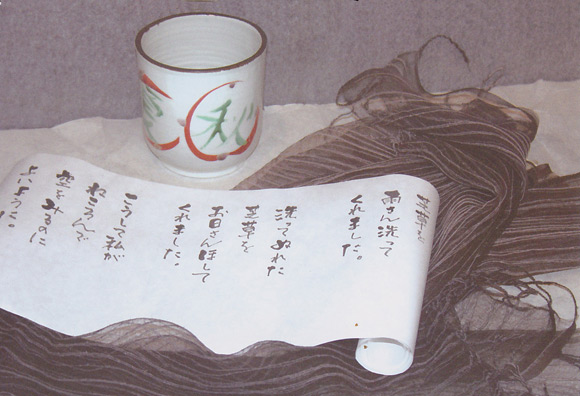 秋
芝草を
雨さん洗って
くれました。
洗ってぬれた
芝草を
お日さんほして
くれました。
こうして私が
ねころんで
空をみるのに
よいように。